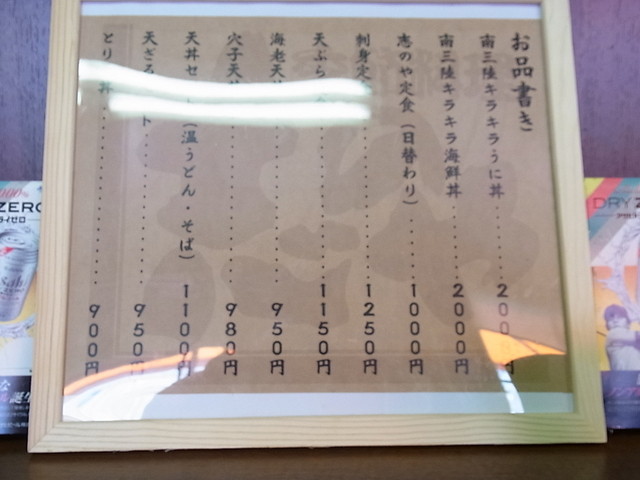 お品書き
南三陸キラキラうに丼
南三陸キラキラ海鮮丼 2000円
志のや定食(日替わり) 1000円
刺身定 1250円
天ぷら 1150円
海老天 950円
穴子天 980円
天丼セ (温うどん そば) 1100円
天ざる ト 950円
とり 丼 900円
ZERO
DRY Z